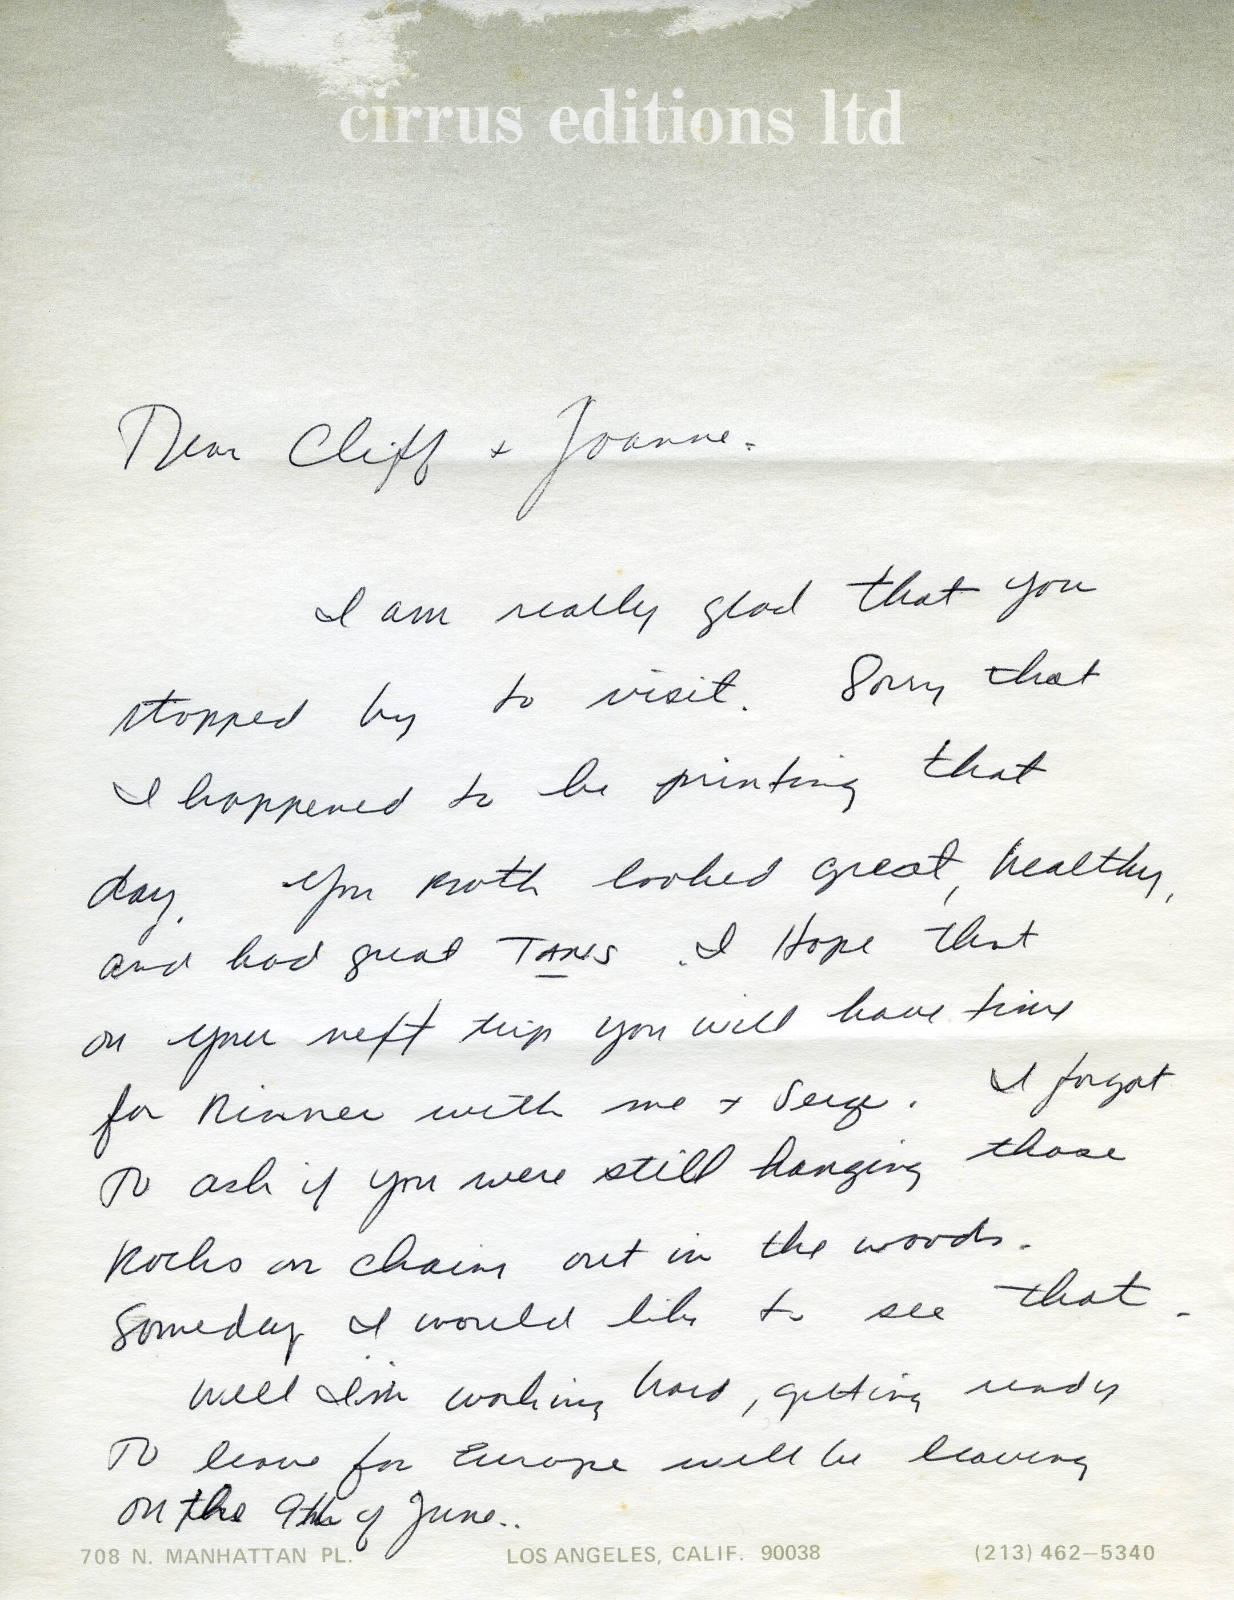 cirrus editions ltd
Dear Cliff + Joanne.
I am really glad that you
stopped by to visit. Sorry that
I happened to be printing that
day. You both looked great, healthy,
and had great TANS. I Hope that
on your next trip you will have time
for Dinner with me + Serge. I forgot
TO ask if you were still hanging those
Rocks on chains out in the woods.
Someday I would like to see that.
Well I'm working hard, getting ready
TO leave for Europe will be leaving
on the 9th of June..
708 N. MANHATTAN PL. LOS ANGELES, CALIF. 90038 (213) 462-5340